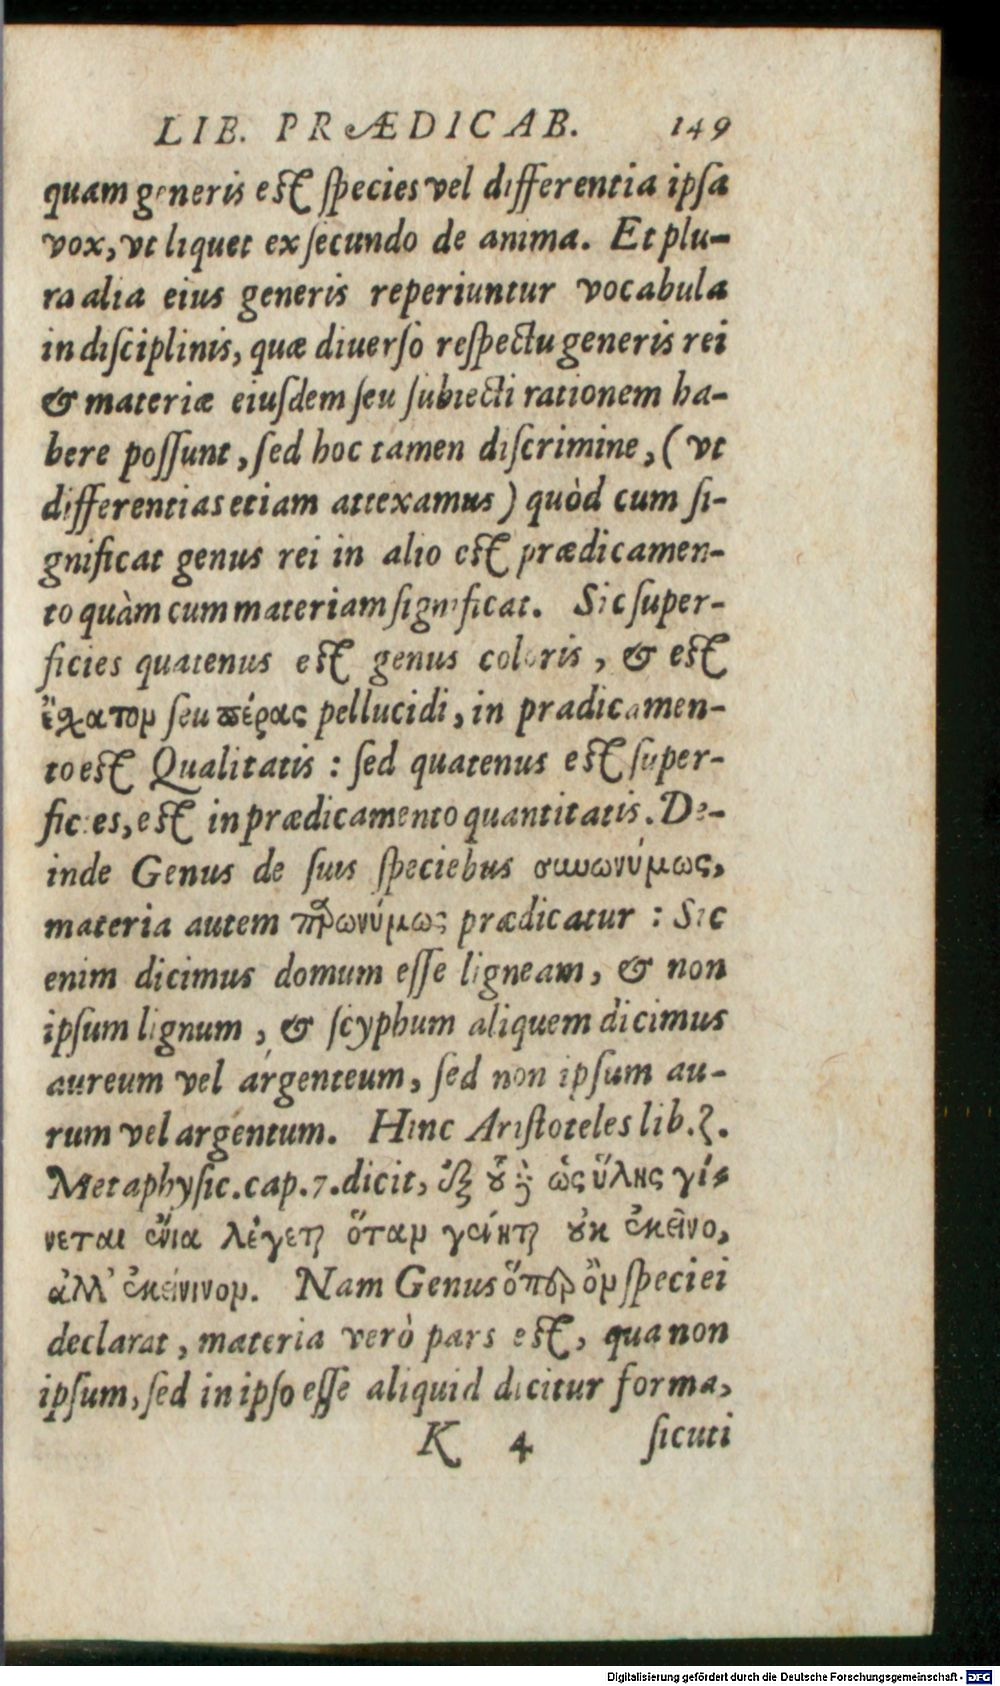 LIB. PRÆDICAB. 149
quam generis est species vel differentia ipsa
vox, vt liquet ex secundo de anima. Et plu-
ra alia eius generis reperiuntur vocabula
in disciplinis, quæ diuerso respectu generis rei
& materiæ eiusdem seu subiecti rationem ha-
bere possunt, sed hoc tamen discrimine, ( vt
differentias etiam attexamus ) quòd cum si-
gnificat genus rei in alio est prædicamen-
to quàm cum materiam significat. Sic super-
ficies quatenus est genus coloris, & est
ἔχατομ seu πέρας pellucidi, in prædicamen-
to est Qualitatis : sed quatenus est super-
ficies, est in prædicamento quantitatis. De-
inde Genus de suis speciebus συνωνύμως,
materia autem παρωνύμως prædicatur : Sic
enim dicimus domum esse ligneam, & non
ipsum lignum, & scyphum aliquem dicimus
aureum vel argenteum, sed non ipsum au-
rum vel argentum. Hinc Aristoteles lib. ζ.
Metaphysic. cap. 7. dicit, ἐξ οὗ δὲ ὡς ὕλης γί-
νεται ἔνια λέγεται ὅταμ γένηται οὐκ ἐκεῖνο,
ἀλλ' ἐκείνινομ. Nam Genus ὅπερ ὂμ speciei
declarat, materia verò pars est, qua non
ipsum, sed in ipso esse aliquid dicitur forma,
K 4 sicuti
Digitalisierung gefördert durch die Deutsche Forschungsgemeinschaft - DFG